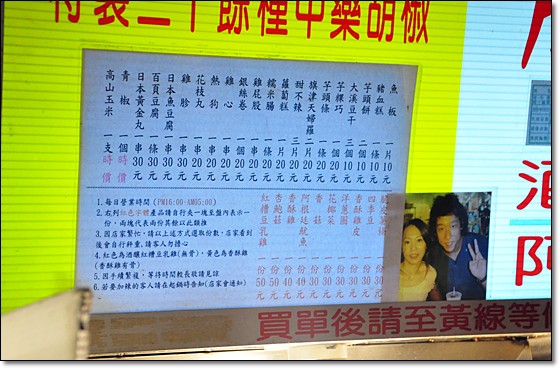 特製二十餘種中藥胡椒
魚板 一片10元
豬血糕 一片10元
芋頭餅 一個10元
大溪豆干 三個10元
芋粿巧 一個20元
芋頭條 一條20元
旗津天婦羅 二片20元
甜不辣 三片20元
蘿蔔糕 一片20元
糯米腸 一條20元
雞屁股 一串20元
銀絲卷 一個20元
雞心 一串20元
熱狗 一條20元
花枝丸 一串20元
雞胗 一串30元
日本魚豆腐 一串30元
百頁豆腐 一條30元
日本黃金丸 一串30元
青椒 一個時價
高山玉米 一支時價
四季豆 一份30元
香酥雞皮 一份30元
洋蔥圈 一份30元
花椰菜 一份30元
香菇 一份30元
阿根廷魷魚 一份30元
香酥雞 一份40元
杏鮑菇 一份40元
紅糟豆乳雞 一份50元
1.每日營業時間(PM16:00~AM05:00)
2.右列紅色字體產品請自行夾一塊至盤內表示一
份,兩塊代表兩份其餘以此類推
3.因店家繁忙,請以上述方式選取份數,店家看到
後會自行秤重,請客人勿擔心
4.紅色為酒釀紅糟豆乳雞(無骨),黃色為香酥雞
(香酥雞有骨)
5.因手續繁複,等待時間較長敬請見諒
6.若要加辣的客人請在起鍋時告知(店家會通知)
買單後請至黃線等
酒
阿